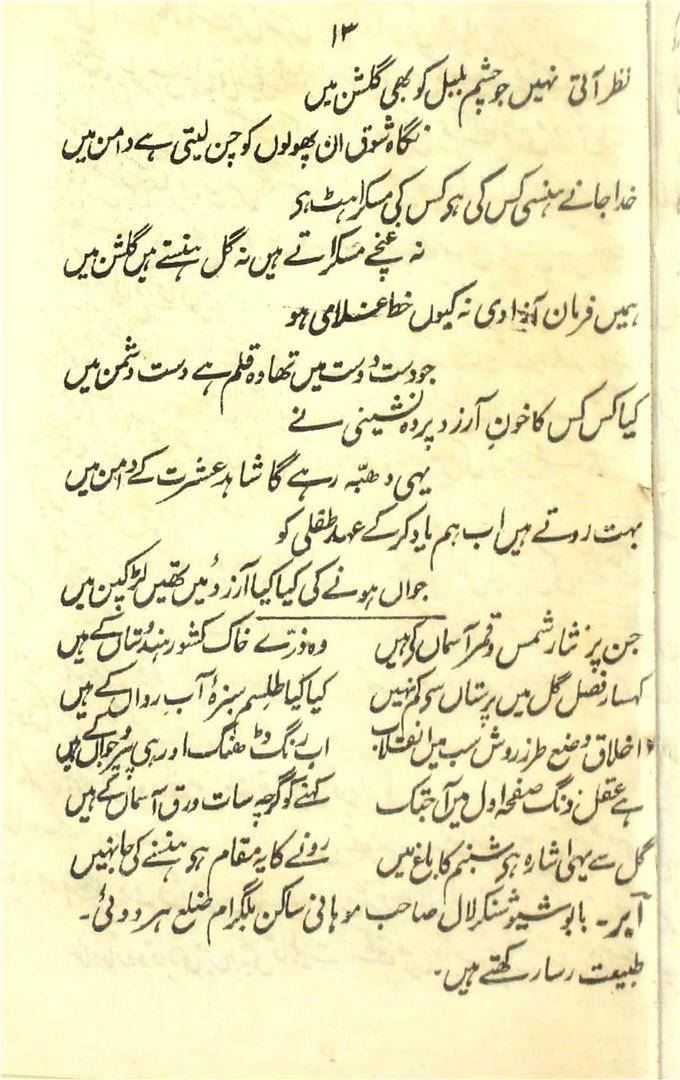 ۱۳
نظر آتی نہیں جو چشم بلبل کو بھی گلشن میں
نگاہ شوق ان پھولوں کو چن لیتی ہے دامن میں
خدا جانے ہنسی کس کی ہو کس کی مسکراہٹ ہو
نہ غنچے مسکراتے ہیں نہ گل ہنستے ہیں گلشن میں
ہمیں فرمان آزادی نہ کیوں خط غلامی ہو
جو دست دوست میں تھا وہ قلم ہے دست دشمن میں
کیا کس کس کا خونِ آرزو پردہ نشینی نے
یہی دھبّہ رہے گا شاہد عشرت کے دامن میں
بہت روتے ہیں اب ہم یاد کر کے عہد طفلی کو
جواں ہونے کی کیا کیا آرزوئیں تھیں لڑکپن میں
جن پر نثار شمس و قمر آسماں کے ہیں وہ ذرّے خاک کشور ہندوستاں کے ہیں
کہسار فصل گل میں پرستاں سے کم نہیں کیا کیا طلسم سبزۂ آب رواں کے ہیں
اخلاق وضع طرز روش سب میں انقلاب اب رنگ ڈھنگ اور ہی پیر و جواں کے ہیں
ہے عقل دنگ صفحہ اول میں آجتک کہنے کو گرچہ سات ورق آسماں کے ہیں
گل سے یہی اشارہ ہے شبنم کا باغ میں رونے کا یہ مقام ہے ہنسنے کی جا نہیں
آبر۔ بابو شیو شنکر لال صاحب موہانی ساکن بلگرام ضلع ہردوئی۔
طبیعت رسا رکھتے ہیں۔